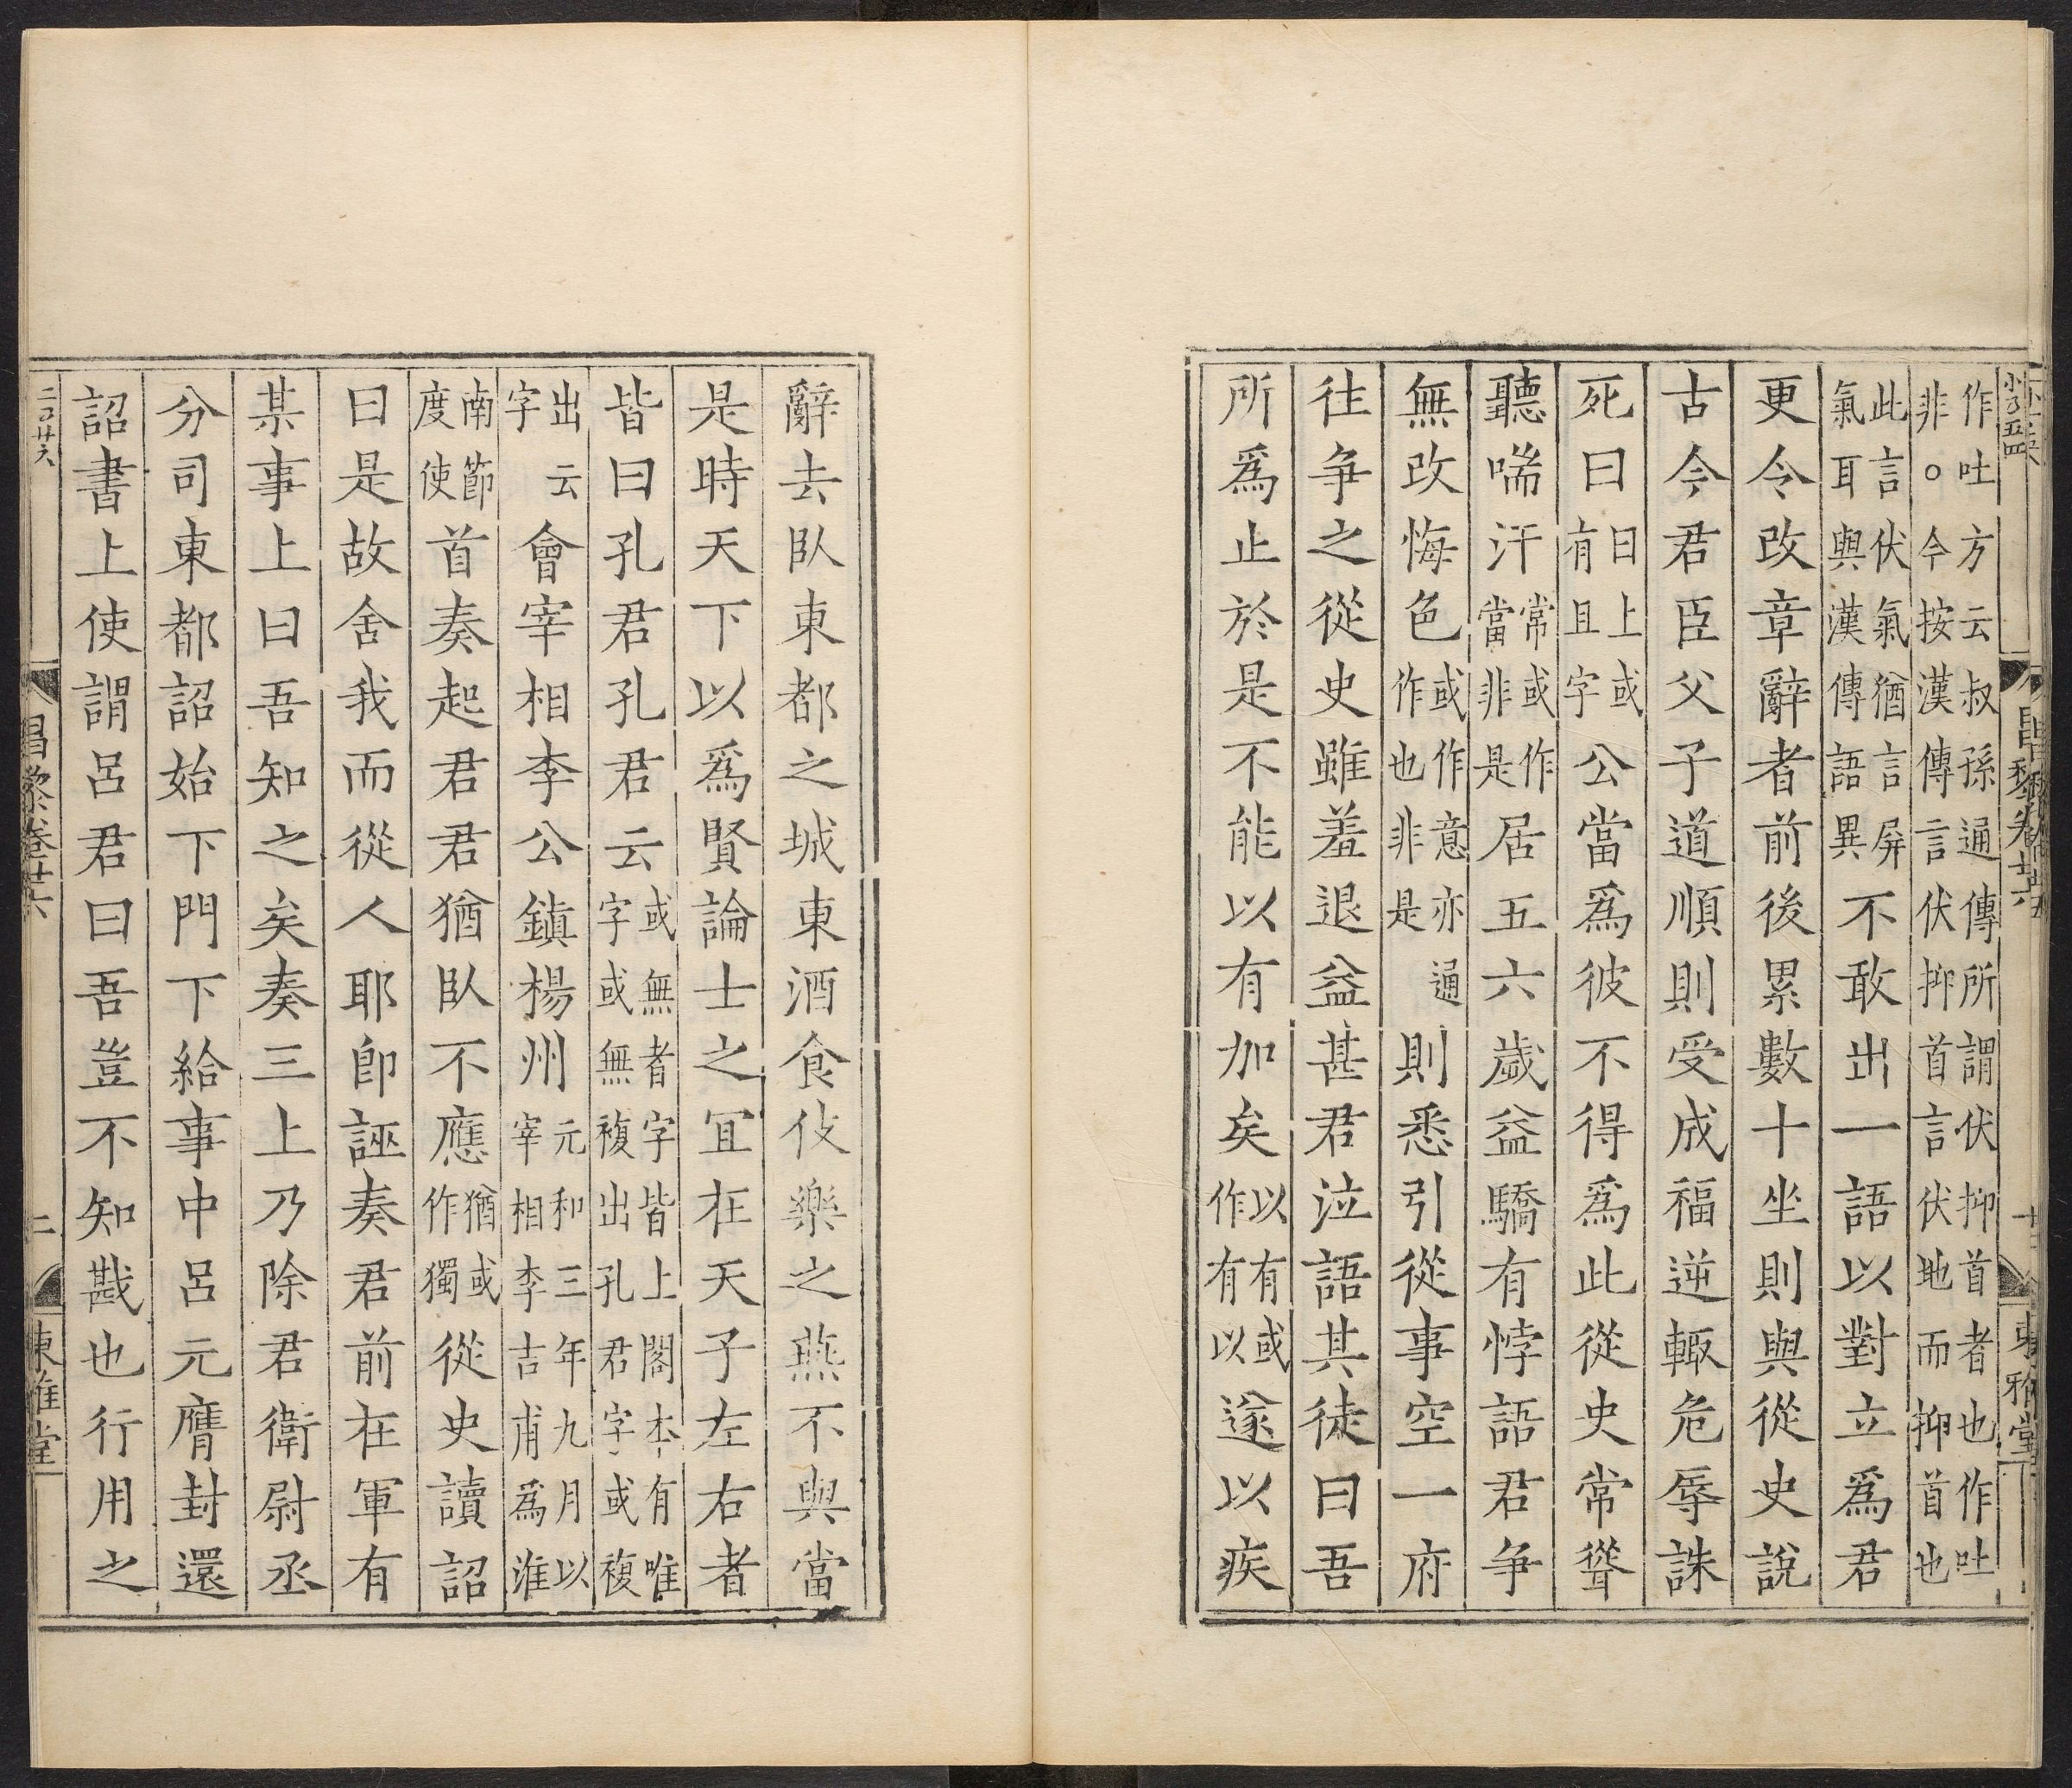 作吐方云叔孫通傳所謂伏抑首者也作吐
非○今按漢傳言伏抑首言伏地而抑首也
此言伏氣猶言屏氣耳與漢傳語異不敢出一語以對立爲君
更令改章辭者前後累數十坐則與從史說
古今君臣父子道順則受成福逆輒危辱誅
死曰曰上或有且字公當爲彼不得爲此從史常聳
聽喘汗常或作當非是居五六歲益驕有悖語君争
無改悔色或作意亦通作也非是則悉引從事空一府
往争之從史雖羞退益甚君泣語其徒曰吾
所爲止於是不能以有加矣以有或作有以遂以疾
辭去臥東都之城東酒食伎樂之燕不與當
是時天下以爲賢論士之宜在天子左右者
皆曰孔君孔君云或無者字皆上閣本有唯字或無複出孔君字或複
出云字會宰相李公鎮楊州元和三年九月以宰相李吉甫爲淮
南節度使首奏起君君猶臥不應猶或作獨從史讀詔
曰是故舍我而從人耶卽誣奏君前在軍有
某事上曰吾知之矣奏三上乃除君衛尉丞
分司東都詔始下門下給事中呂元膺封還
詔書上使謂呂君曰吾豈不知戡也行用之
昌黎卷廿六
東雅堂